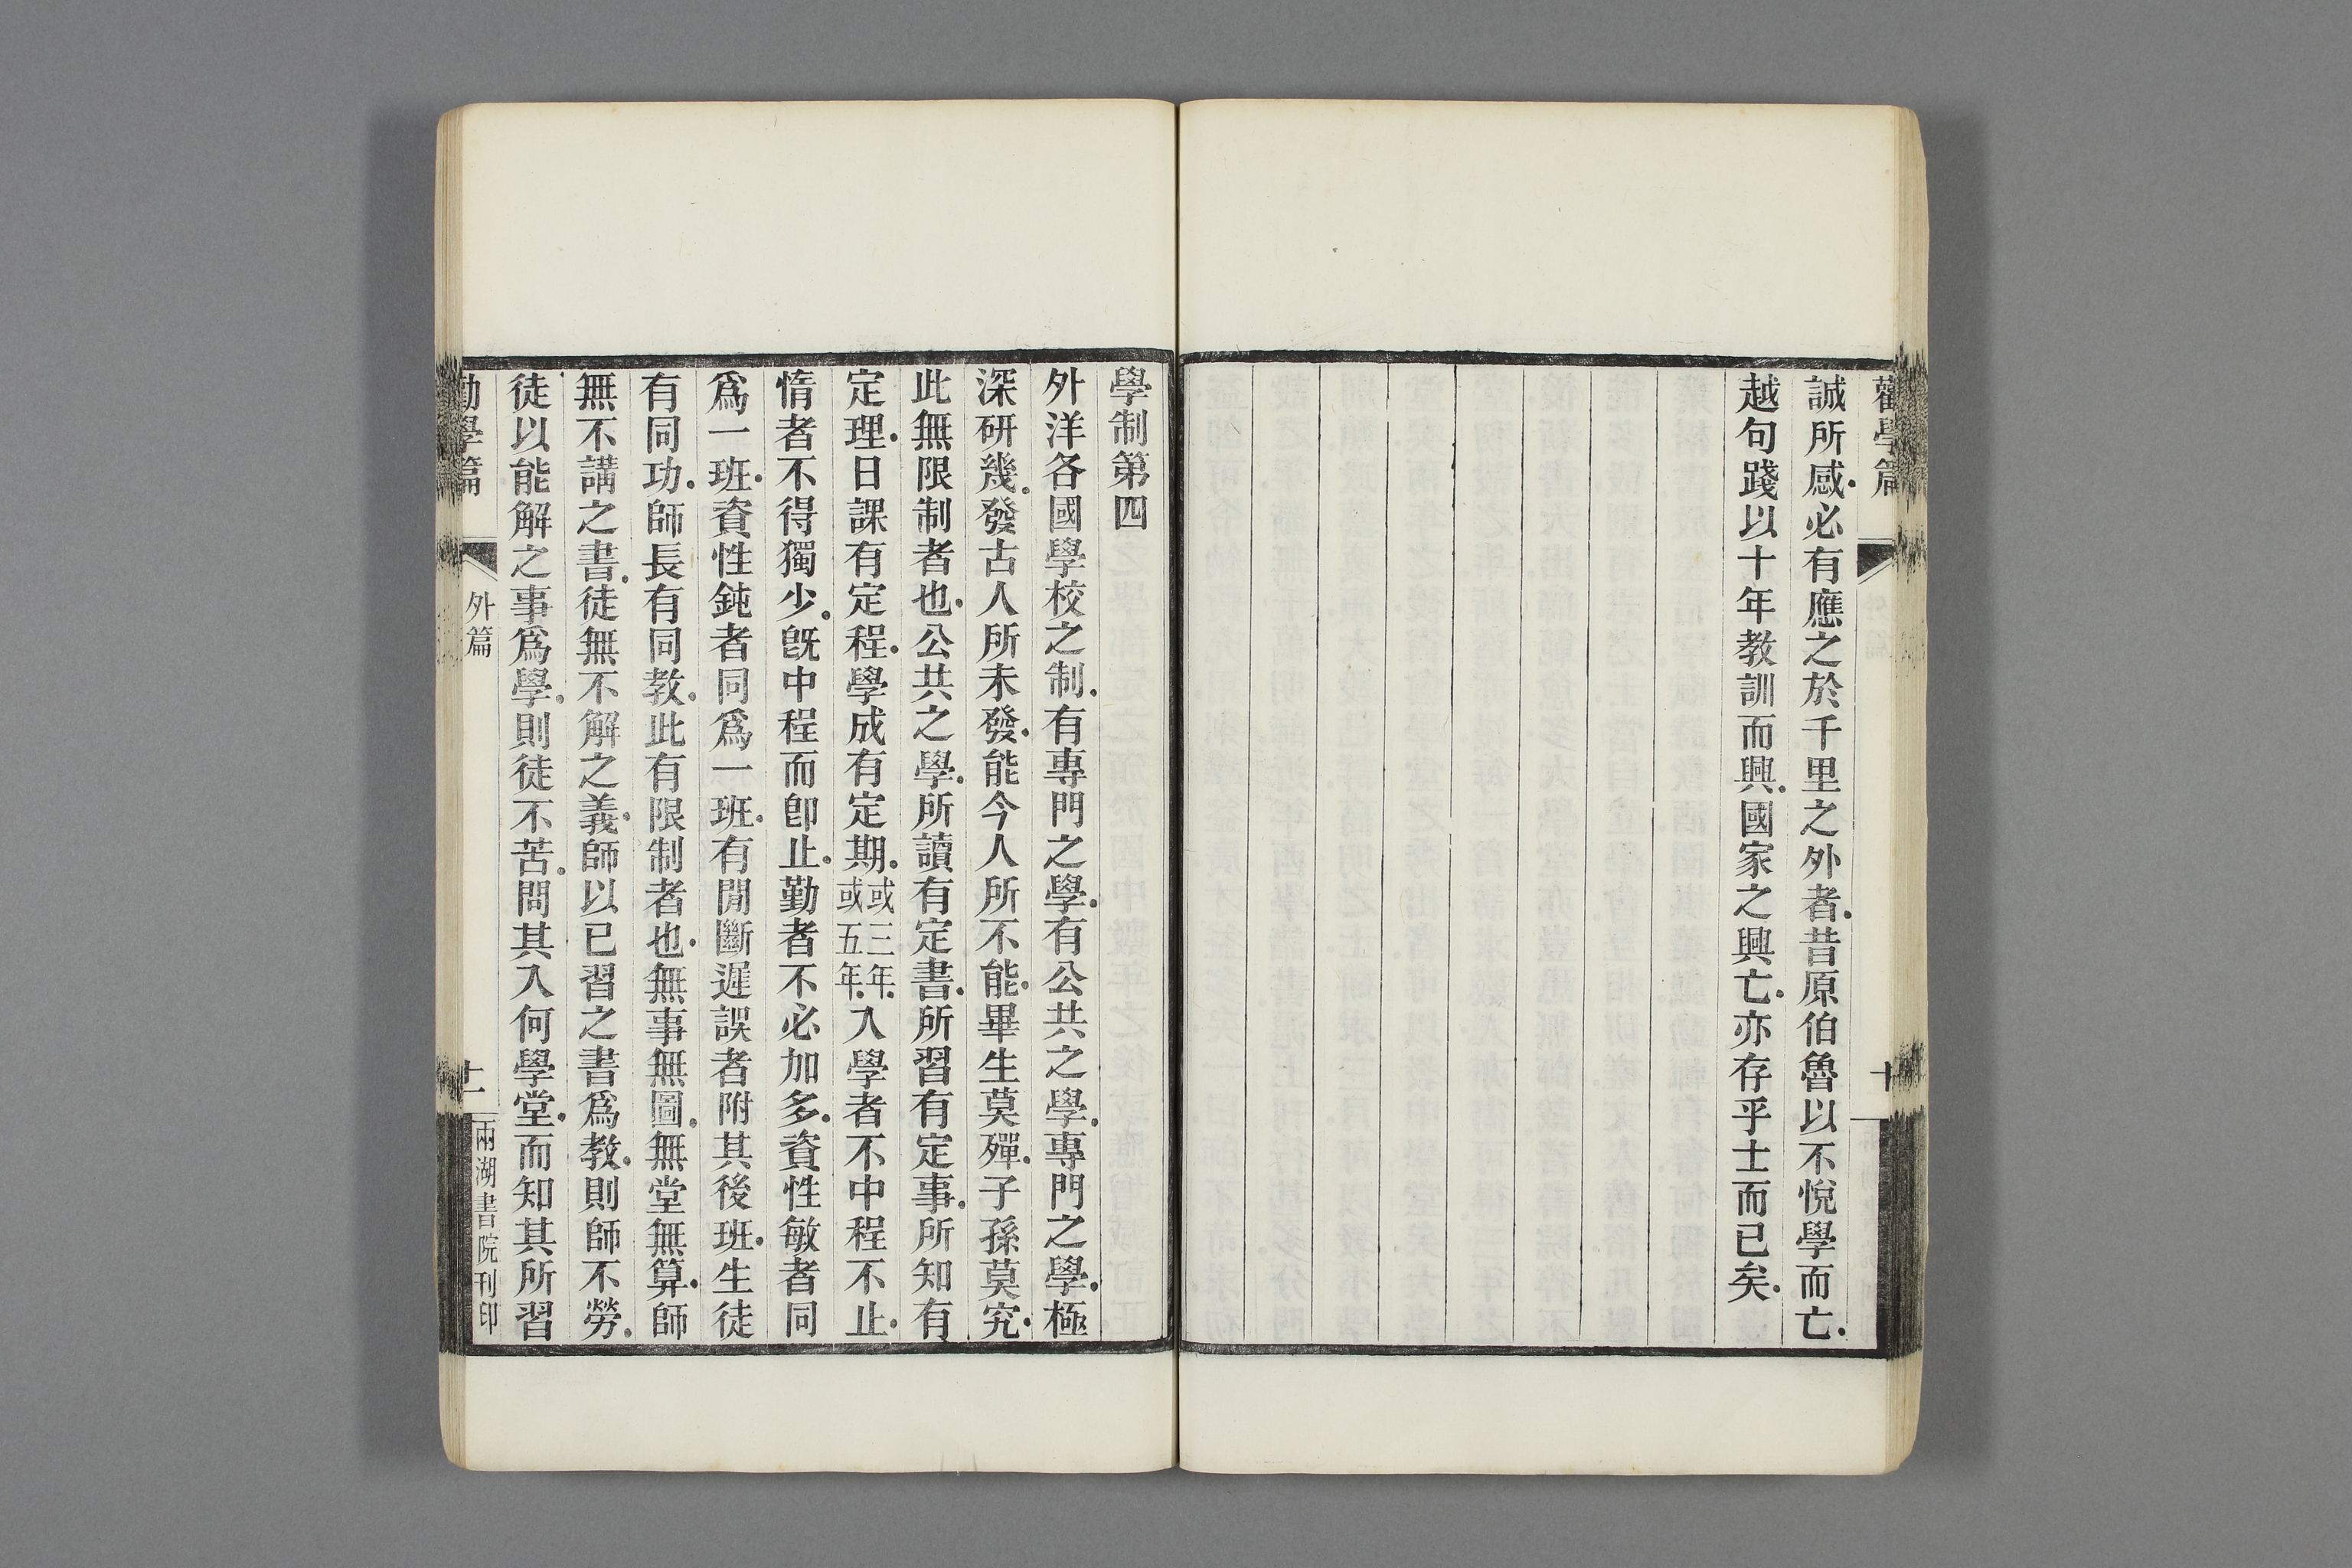 勸學篇
十
誠所感．必有應之於千里之外者．昔原伯魯以不悅學而亡．
越句踐以十年教訓而興．國家之興亡．亦存乎士而已矣．
學制第四
外洋各國學校之制．有專門之學．有公共之學．專門之學．極
深研幾．發古人所未發．能今人所不能．畢生莫殫．子孫莫究．
此無限制者也．公共之學．所讀有定書．所習有定事．所知有
定理．日課有定程．學成有定期．或三年．或五年．入學者不中程不止．
惰者不得獨少．旣中程而卽止．勤者不必加多．資性敏者同
爲一班．資性鈍者同爲一班．有閒斷遲誤者附其後班．生徒
有同功．師長有同教．此有限制者也．無事無圖．無堂無算．師
無不講之書．徒無不解之義．師以已習之書爲教．則師不勞．
徒以能解之事爲學．則徒不苦．問其入何學堂．而知其所習
勸學篇
外篇
十一
兩湖書院刊印